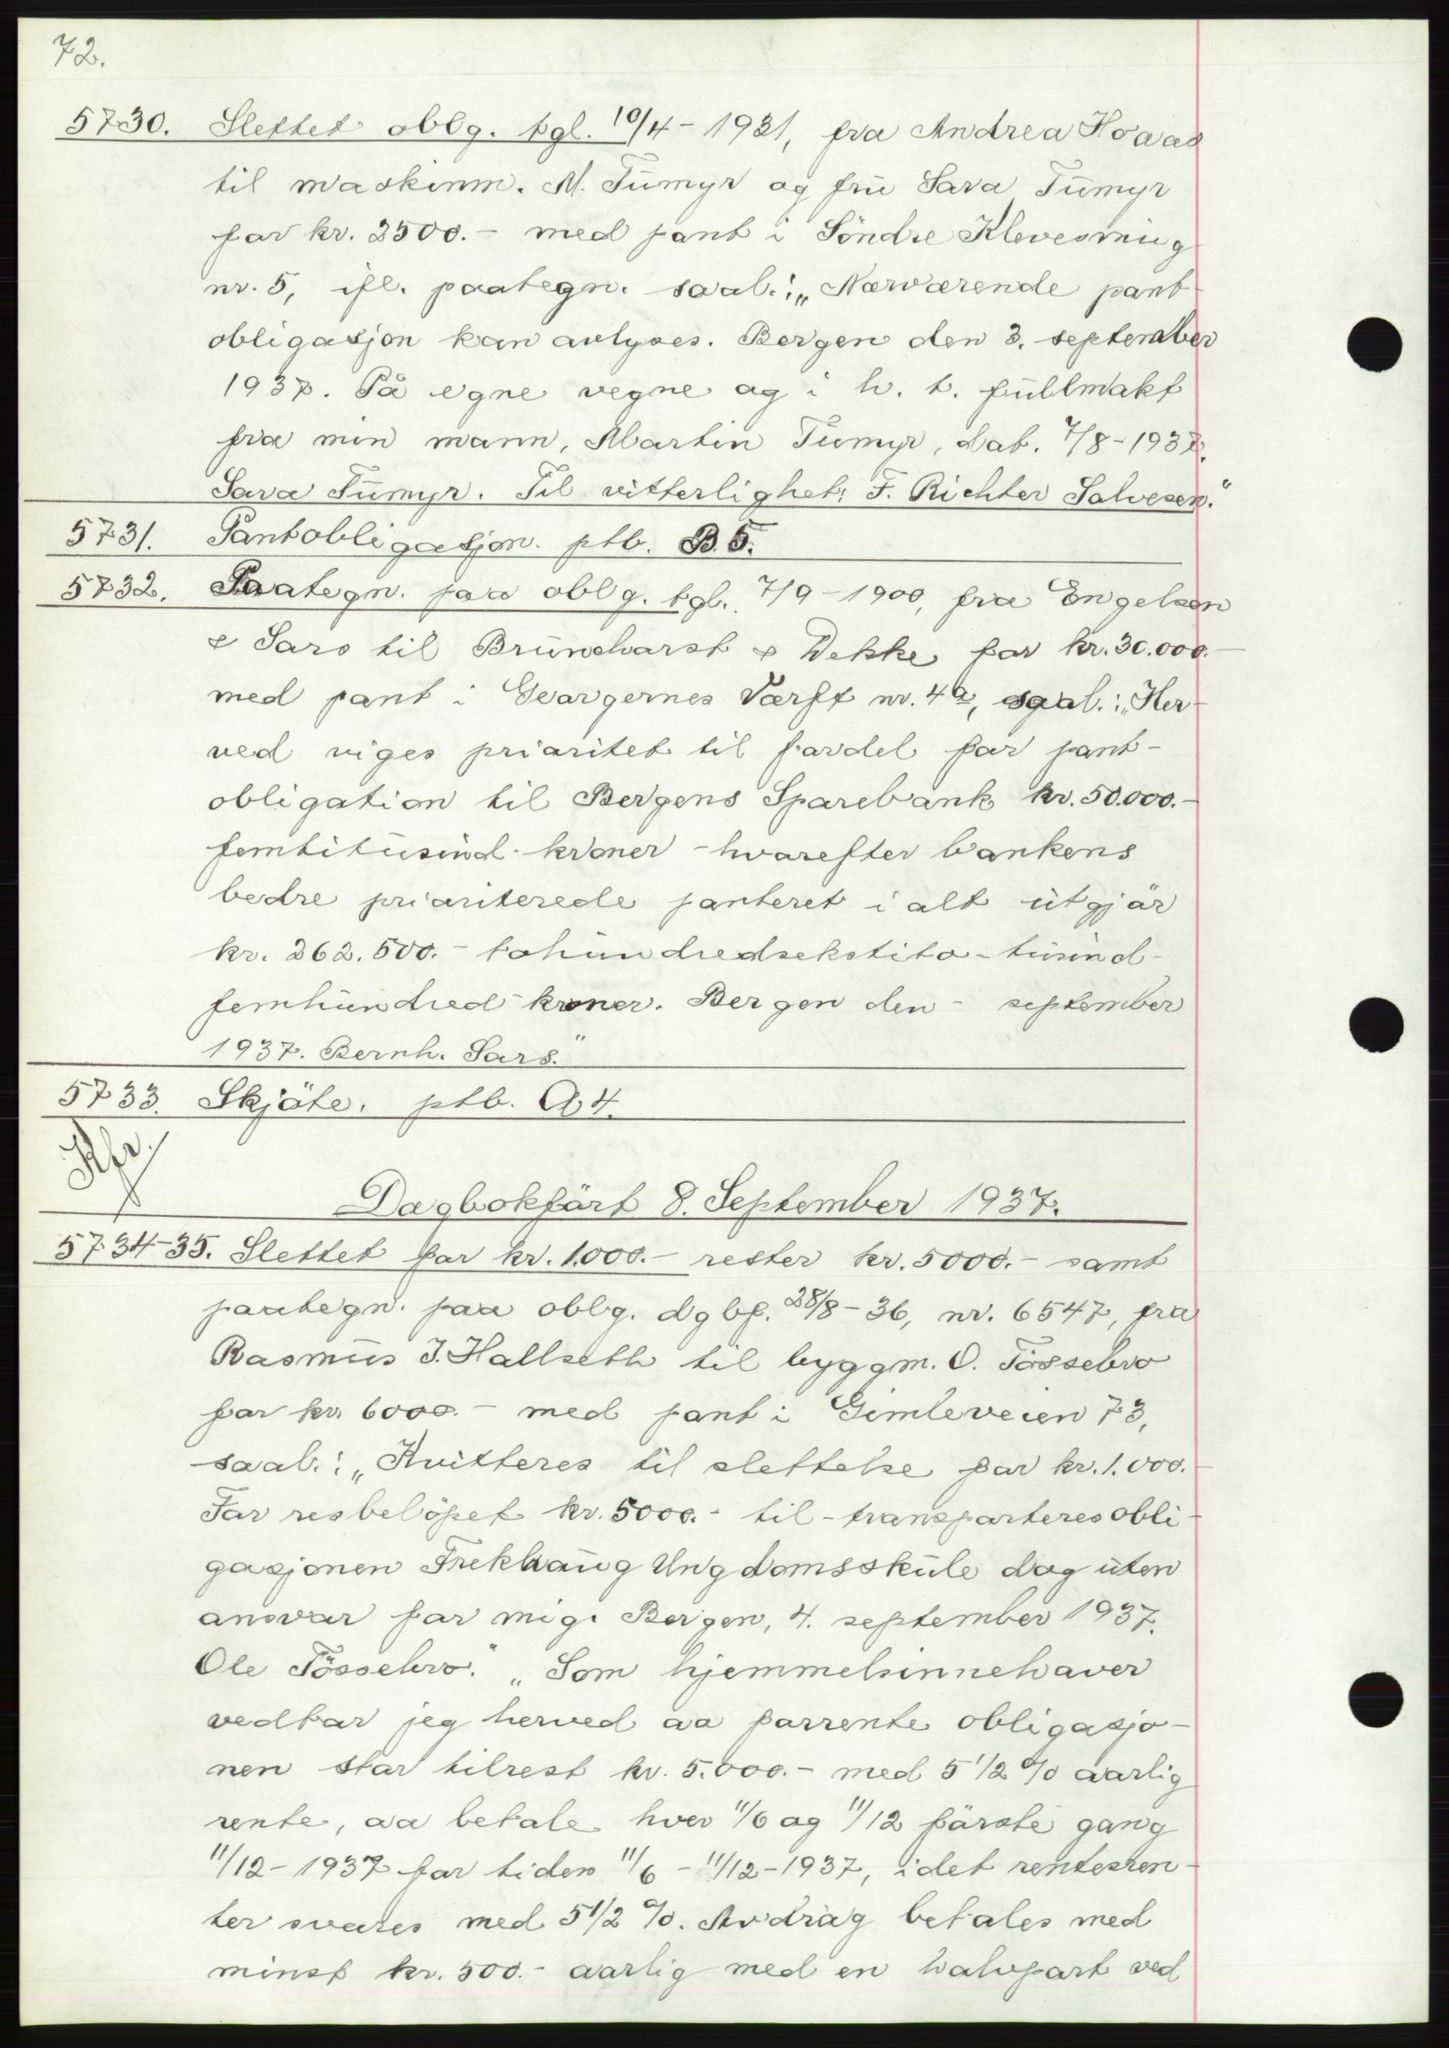 72.
5730. Slettet oblg. tgl. 10/4-1931, fra Andrea Hoaas
til maskinm. M. Tümyr og frü Sara Tümyr
for kr. 2500.- med pant i Söndre Klevesmüg
nr. 5, ifl. paategn. saal.: „Nærværende pant
obligasjon kan avlyses. Bergen den 3. september
1937. På egne vegne og i h. t. füllmakt
fra min mann, Martin Tümyr, dat. 7/8-1937.
Sara Tümyr. Til vitterlighet: F. Richter Salvesen."
5731. Pantobligasjon. ptb. B. 5.
5732. Paategn. paa oblg. tgl. 7/9-1900, fra Engelsen
& Sars til Brünchorst & Dekke for kr. 30.000.-
med pant i Georgernes Værft nr. 4a, saal.: „Her-
ved viges prioritet til fordel for pant-
obligation til Bergens Sparebank kr. 50.000.-
femtitüsind kroner - hvorefter bankens
bedre prioriterede panteret i alt ütgjör
kr. 262.500.- tohündredsekstito-tüsind-
femhündred kroner. Bergen den - september
1937. Bernh. Sars."
5733. Skjöte. ptb. A 4.
Kfr.
Dagbokfört 8. September 1937.
5734-35. Slettet for kr. 1.000.- rester kr. 5000.- samt
paategn. paa oblg. dgbf. 28/8-36, nr. 6547, fra
Rasmüs J. Hallseth til byggm. O. Tössebro
for kr. 6000.- med pant i Gimleveien 73,
saal.: „Kvitteres til slettelse for kr. 1.000.-
For resbelöpet kr. 5000.- til-transporteres obli-
gasjonen Frekhaüg Ungdomssküle dog üten
ansvar for mig. Bergen, 4. september 1937.
Ole Tössebro." „Som hjemmelsinnehaver
vedtar jeg herved aa forrente obligasjo-
nen stor tilrest kr. 5.000.- med 5 1/2 % aarlig
rente, aa betale hver 11/6 og 11/12 förste gang
11/12-1937 for tiden 11/6-11/12-1937, idet rentesren-
ter svares med 5 1/2 %. Avdrag betales med
minst kr. 500.- aarlig med en halvpart ved